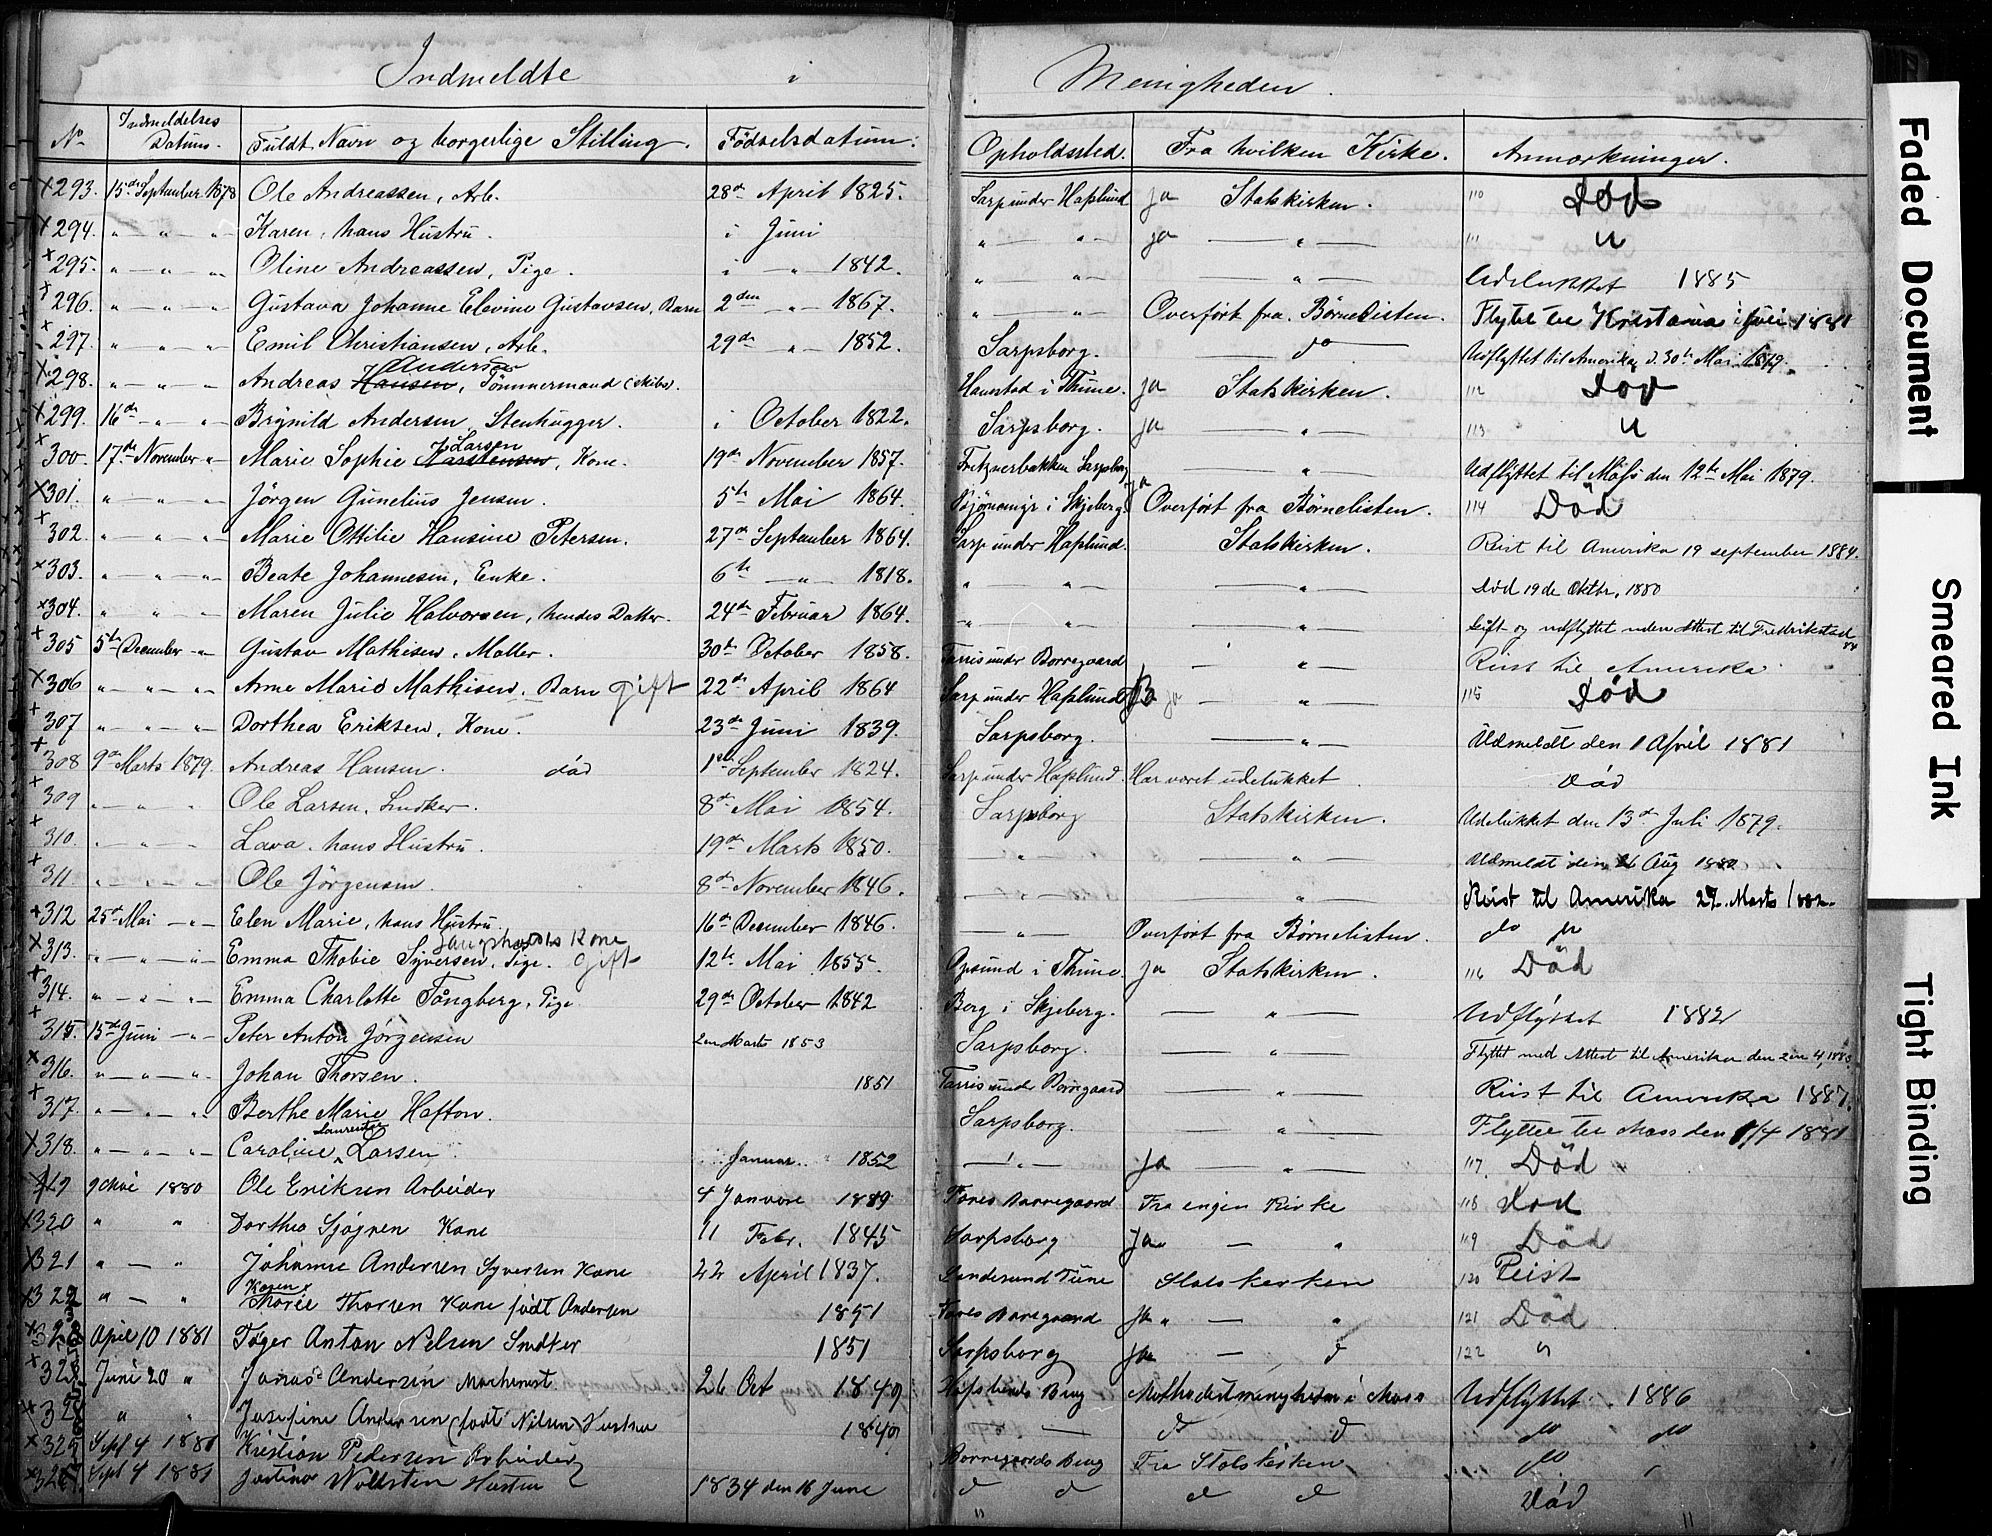 Indmeldte i Menigheden.
N. Indmeldelses Datum. Fuldt Navn og borgerlige Stilling. Fødselsdatum. Opholdssted. Fra hvilken Kirke. Anmærkninger.
x 293. 15de September 1878 Ole Andreassen, Arb. 28de April 1825. Sarp under Hafslund Ja Statskirken. 110 Död
x 294. " — " — " Karen, hans Hustru. i Juni " " Ja — " — 111 "
x 295. " — " — " Oline Andreassen, Pige. i — " 1842. " " — " — Udelukket 1885
x 296. " — " — " Gustava Johanne Elevine Gustavsen, Barn 2den — " — 1867. " — " Overført fra Børnelisten. Flyttet til Kristania i Juli 1881
x 297. " — " — " Emil Christiansen, Arb. 29de — " — 1852. Sarpsborg. — do — Udflyttet til Amerika d. 30te Mai 1879.
x 298. " — " — " Andreas Hansen, Andersen Tømmermand (Skibs). Haustad i Thune. Ja Statskirken. 112 Död
x 299. 16de " — " Brynild Andersen, Stenhugger. i October 1822. Sarpsborg. Ja — " — 113 "
x 300. 17de November " Marie Sophie Karstensen, Larsen Kone. 19de November 1857. Fritznerbakken Sarpsborg — " — Udflyttet til Moss den 12te Mai 1879.
x 301. " — " — " Jörgen Gunelius Jensen. 5te Mai 1864. i Skjeberg. Ja Overført fra Børnelisten. 114 Död
x 302. " — " — " Marie Ottilie Hansine Petersen. 27de September 1864. Sarp under Hafslund. Statskirken. Reist til Amerika 19 september 1884.
x 303. " — " — " Beate Johannesen, Enke. 6te — " — 1818. " " — " — Död 19de Oktbr. 1880
x 304. " " — " Maren Julie Halvorsen, hendes Datter. 24de Februar 1864. " " — " — Gift og udflyttet uden Attest til Fredrikstad
x 305 5te December " Gustav Mathisen, Møller. 30te October 1858. Tarris under Borregaard — " — Reist til Amerika
x 306 " — " — " Anne Marie Mathisen, Barn Gift 22de April 1864 Sarp under Hafslund Ja — " — 115 Död
x 307 " — " — " Dorthea Eriksen, Kone. 23de Juni 1839. Sarpsborg. — " — Udmeldt den 1 April 1881
x 308 9de Marts 1879. Andreas Hansen. död 1ste September 1824. Sarp under Hafslund. Har været udelukket. Död
x 309 " — " " Ole Larsen, Snedker. 8de Mai 1854. Sarpsborg Statskirken. Udelukket den 13de Juli 1879.
x 310. " — " " Lava, hans Hustru. 19de Marts 1850. — " — — " — Udmeldt den 26 Aug 1880
x 311 " — " — " Ole Jörgensen. 8de November 1846. — " — — " — Reist til Amerika 27. Marts 1882.
x 312 25de Mai — " Elen Marie, hans Hustru. 16de December 1846. — " — Overført fra Børnelisten. do do
x 313. " — " — " Emma Thobie Syversen, Pige. Kone Gift 12te Mai 1855. Opsund i Thune. Ja Statskirken. 116 Död
x 314. " — " — " Emma Charlotte Tångberg, Pige 29de October 1842 Borg i Skjeberg. — " — Udflyttet 1882
x 315 15de Juni — " Peter Anton Jørgensen 2en Marts 1853 Sarpsborg. — " — Flyttet med Attest til Amerika den
x 316. " — " — " Johan Thorsen. 1851 Tarris under Borregaard — " — Reist til Amerika 1887.
x 317. " — " — " Berthe Marie Hafton. Sarpsborg. — " — Flyttet til Moss den 1/4 1881
x 318. " — " — " Caroline Laurentze Larsen. Januar 1852 — " — Ja — " — 117. Död
319 9 Mai 1880 Ole Eriksen Arbeider 4 Januar 1889 Tares Borregaard Fra engen Kirke 118 Död
x 320 " " Dorthea Sjögren Kone 11 Febr. 1845 Sarpsborg Ja — " 119 Död
x 321 " — " Johanne Andersen Syversen Kone 22 April 1837. Sandesund Tune Statskirken 120 Reist
x 322 " — " Karen Marie Thorsen Kone født Andersen 1851 Tares Borregaard Ja " — " 121 Död
x 323 April 10 1881 Tøger Anton Nelsen Snedker 1851 Sarpsborg Ja — d 122 "
x 32 Juni 20 " Jonas Andersen Machenist. 26 Oct 1849 Hafslunds Brug Methodistmenigheden i Moss Udflyttet 1886
x 32 " " Josefine Andersen (født Nilsen) Hustru 1849 — d d do do
x 32 Sept 4 1881 Kristian Pedersen Arbeider Borregaards Brug Fra Statskirken do "
x 32 Sept 4 1881 Justine Hustru 1834 den 16 June d d d d Död
" "
Faded Document
Smeared Ink
Tight Binding